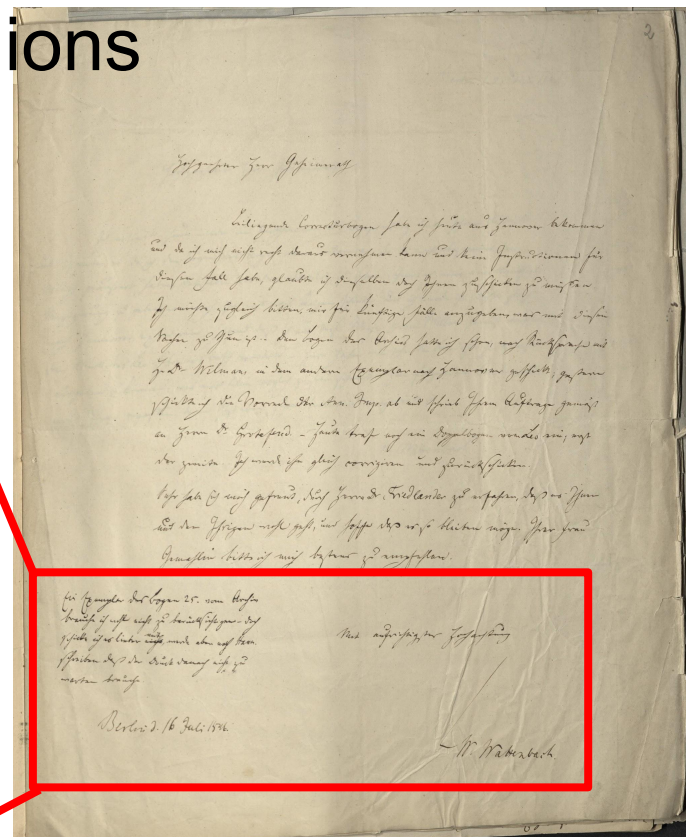 ions
2
Hochgeehrter Herr Geheimerath
Beiliegende Correcturbogen habe ich heute aus Hannover bekommen
und da ich mich nicht recht daraus vernehmen kann und keine Instructionen für
diesen Fall habe, glaubte ich dieselben doch Ihnen zuschicken zu müssen
Ich möchte zugleich bitten, mir für künftige Fälle anzugeben, was mit diesen
Sachen zu thun ist. Den Bogen des Archivs hatte ich schon, nach Rücksprache mit
H. Dr. Wilmans in dem andern Exemplar nach Hannover geschickt, gestern
schickte ich die Vorrede der Ann. ab und schrieb Ihrem Auftrage gemäß
an Herrn Dr. Grotefend. – Heute traf noch ein Doppelbogen von ein, erst
der zweite. Ich werde ihn gleich corrigiren und zurückschicken.
Sehr habe ich mich gefreut, durch Herrn Dr. Friedländer zu erfahren, daß es Ihnen
mit den Ihrigen wohl geht, und hoffe daß es so bleiben möge. Ihrer Frau
Gemahlin bitte ich mich bestens zu empfehlen.
Ein Exemplar des Bogen 25. vom Archiv
brauche ich wohl nicht zu – doch
schicke ich es lieber werde aber nach Hann.
schreiben daß der Druck danach nicht zu
warten brauche.
Mit aufrichtigster Hochachtung
Berlin d. 16 Juli
W. Wattenbach